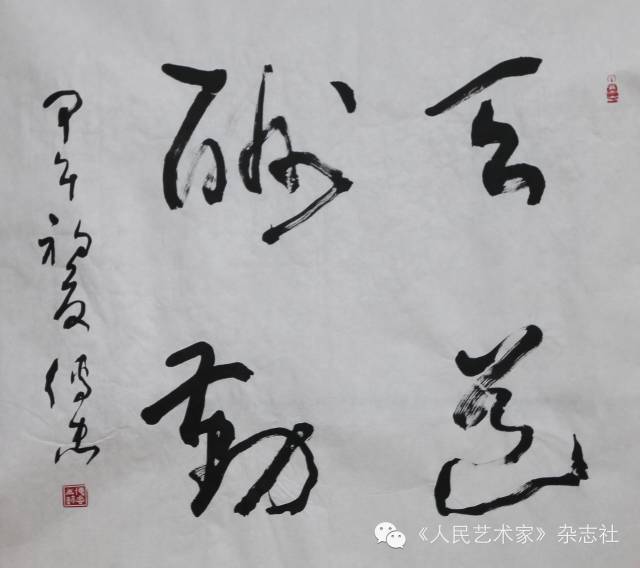 天道
酬勤
甲午初夏
《人民艺术家》杂志社